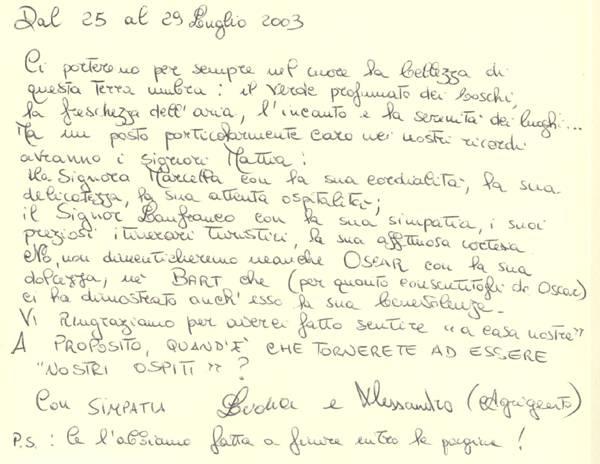 Dal 25 al 29 Luglio 2003
Ci porteremo per sempre nel cuore la bellezza di
questa terra umbra: il verde profumato dei boschi,
la freschezza dell'aria, l'incanto e la serenità dei luoghi...
Ma un posto particolarmente caro nei nostri ricordi
avranno i Signori Mattia:
la Signora Marcella con la sua cordialità, la sua
delicatezza, la sua attenta ospitalità;
il Signor Lanfranco con la sua simpatia, i suoi
preziosi itinerari turistici, la sua affettuosa cortesia.
No, non dimenticheremo neanche OSCAR con la sua
dolcezza, nè BART che (per quanto consentitogli da Oscar)
ci ha dimostrato anch'esso la sua benevolenza.
Vi Ringraziamo per averci fatto sentire "a casa nostra"
A PROPOSITO, QUAND'È CHE TORNERETE AD ESSERE
"NOSTRI OSPITI"?
CON SIMPATIA e Alessandro (Agrigento)
P.S.: Ce l'abbiamo fatta a finire entro la pagina!